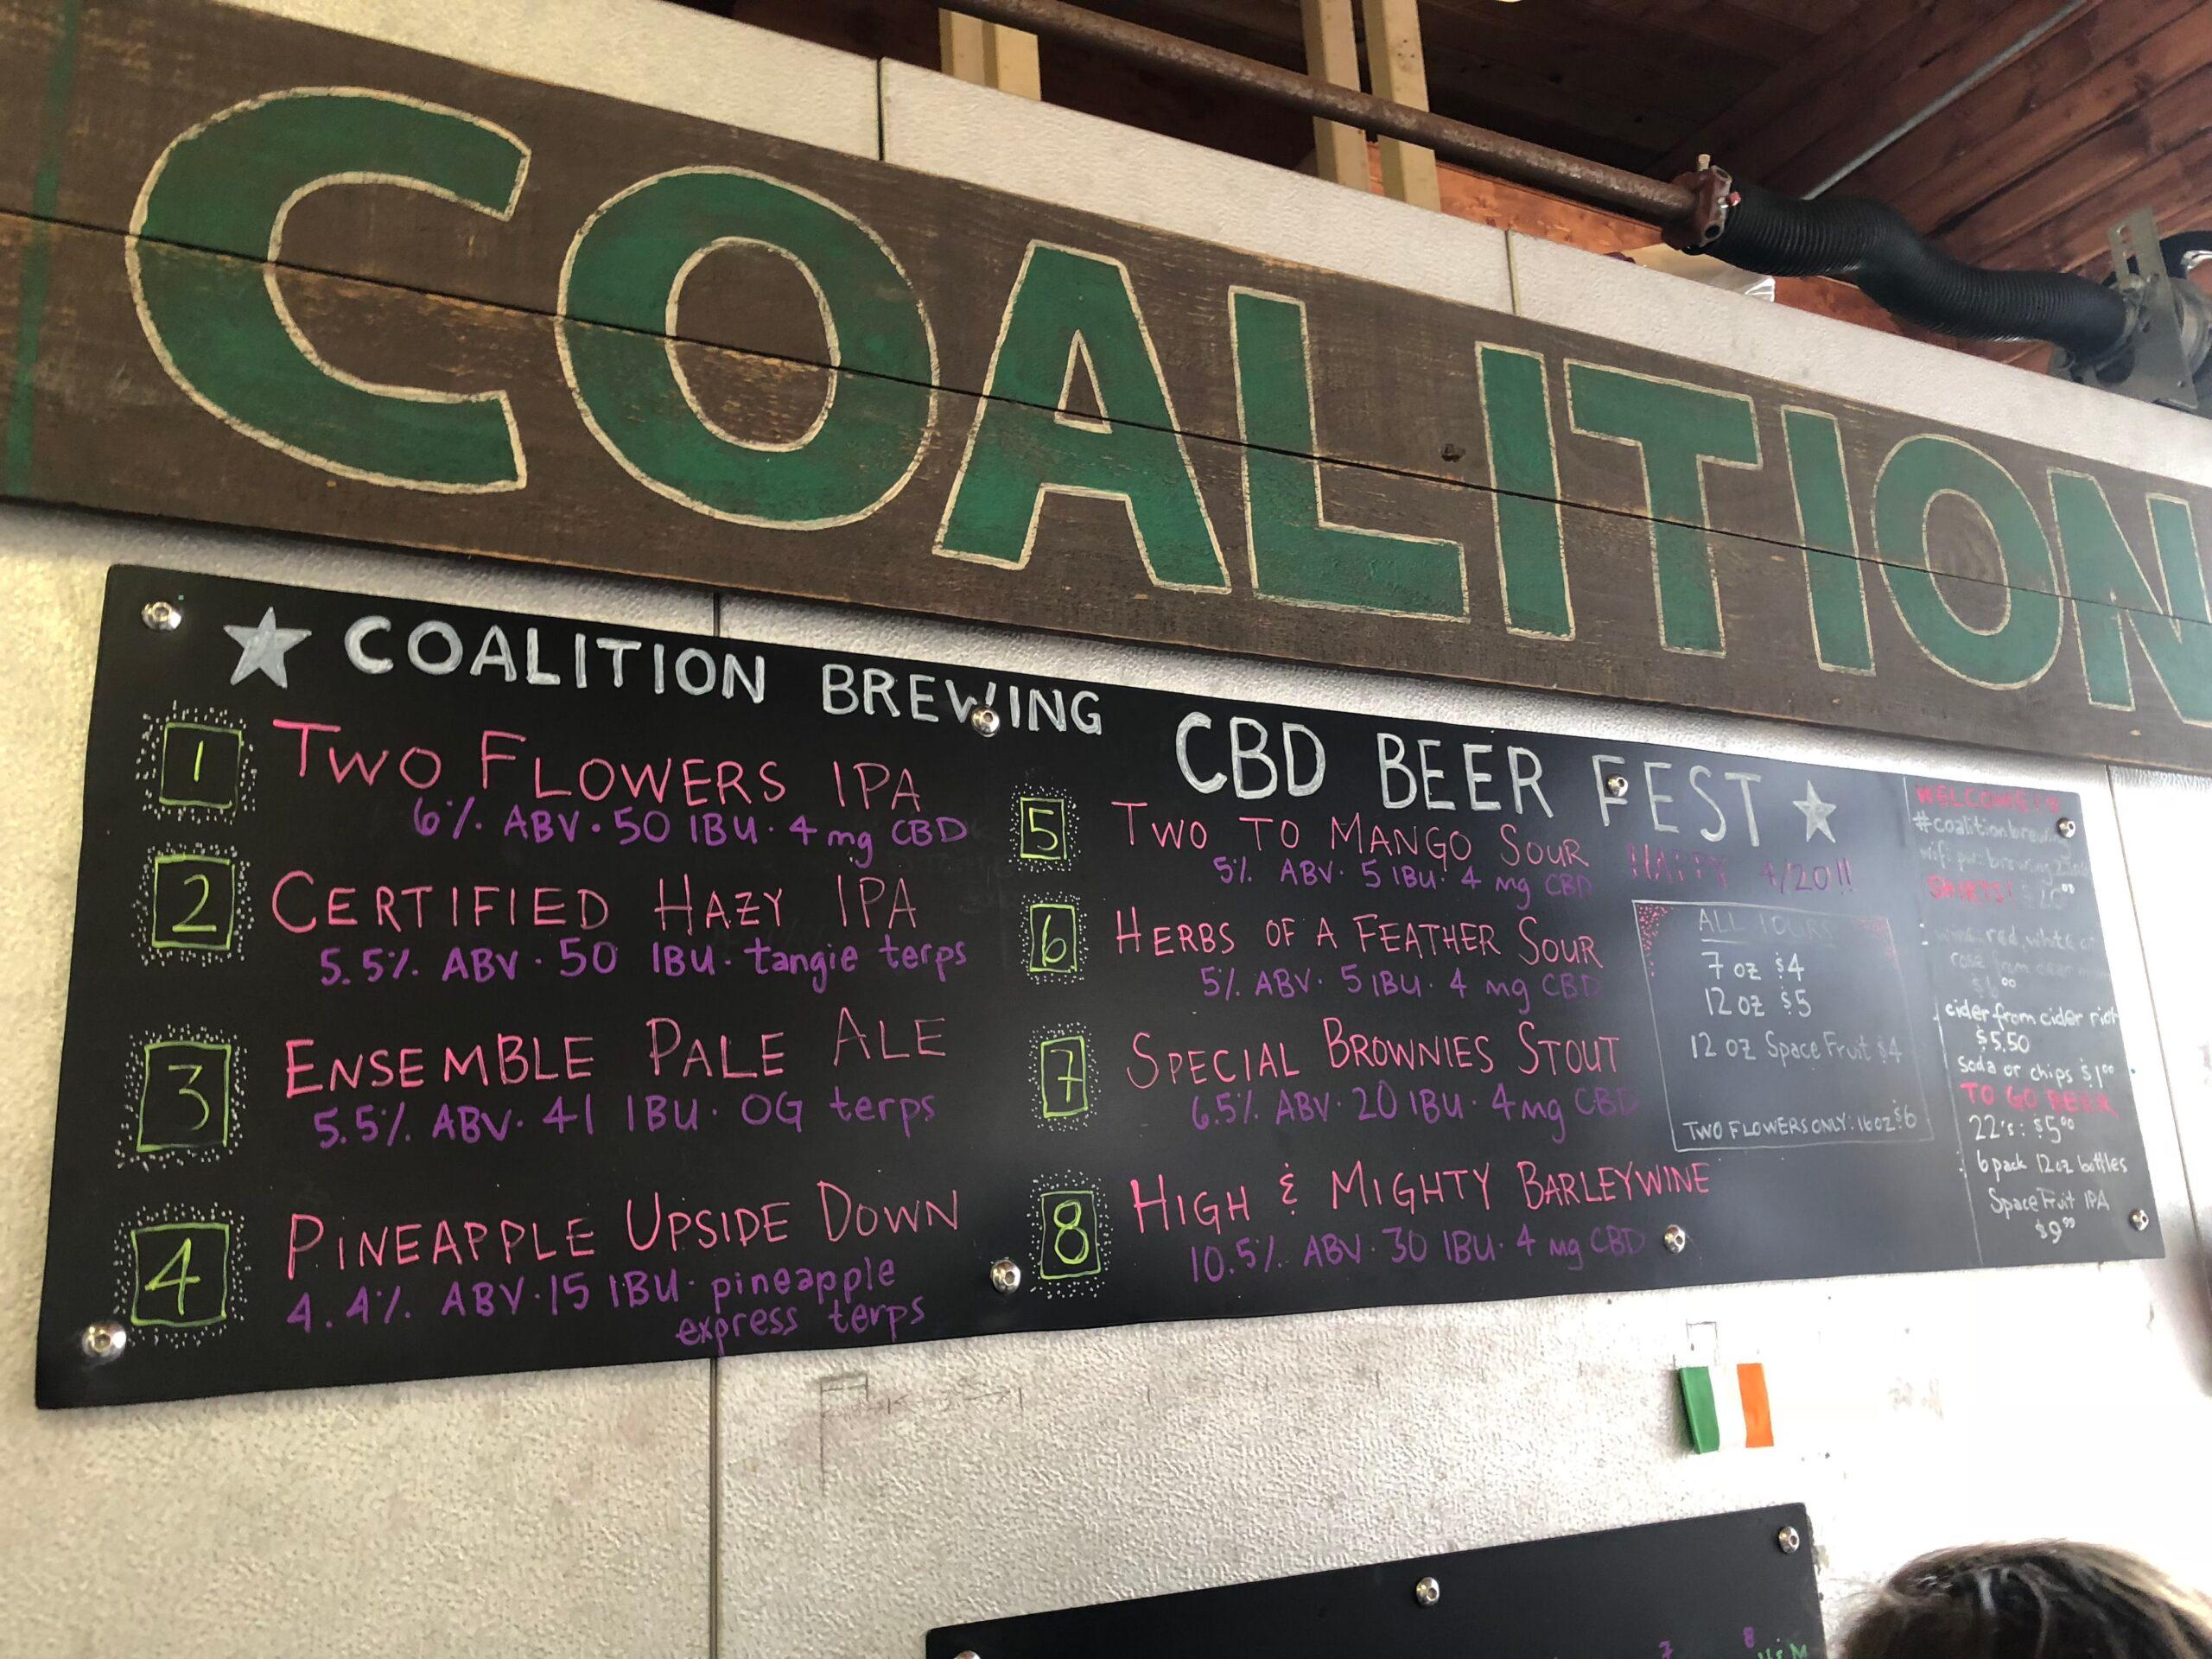 COALITION
COALITION BREWING
CBD BEER FEST
1 TWO FLOWERS IPA
6% ABV · 50 IBU · 4 mg CBD
2 CERTIFIED HAZY IPA
5.5% ABV · 50 IBU · tangie terps
3 ENSEMBLE PALE ALE
5.5% ABV · 41 IBU · OG terps
4 PINEAPPLE UPSIDE DOWN
4.4% ABV · 15 IBU · pineapple
express terps
5 TWO TO MANGO SOUR
5% ABV · 5 IBU · 4 mg CBD
6 HERBS OF A FEATHER SOUR
5% ABV · 5 IBU · 4 mg CBD
7 SPECIAL BROWNIES STOUT
6.5% ABV · 20 IBU · 4 mg CBD
8 HIGH & MIGHTY BARLEYWINE
10.5% ABV · 30 IBU · 4 mg CBD
HAPPY 4/20!!
ALL
7 oz $4
12 oz $5
12 oz Space Fruit $4
TWO FLOWERS ONLY: 16oz $6
WELCOME!
wifi
SHIRTS! $20⁰⁰
wine: red, white
rose from
cider from cider riot
$5.50
soda or chips $1⁰⁰
TO GO BEER
22's: $5⁰⁰
6 pack 12oz bottles
Space Fruit IPA
$9⁹⁹